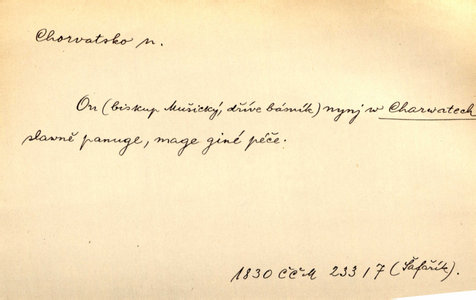 Chorvatsko n.
On (biskup Mušický, dříve básník) nynj w Charwatech
slawně panuge, mage giné péče.
1830 ČČM 233/7 (Šafařík).